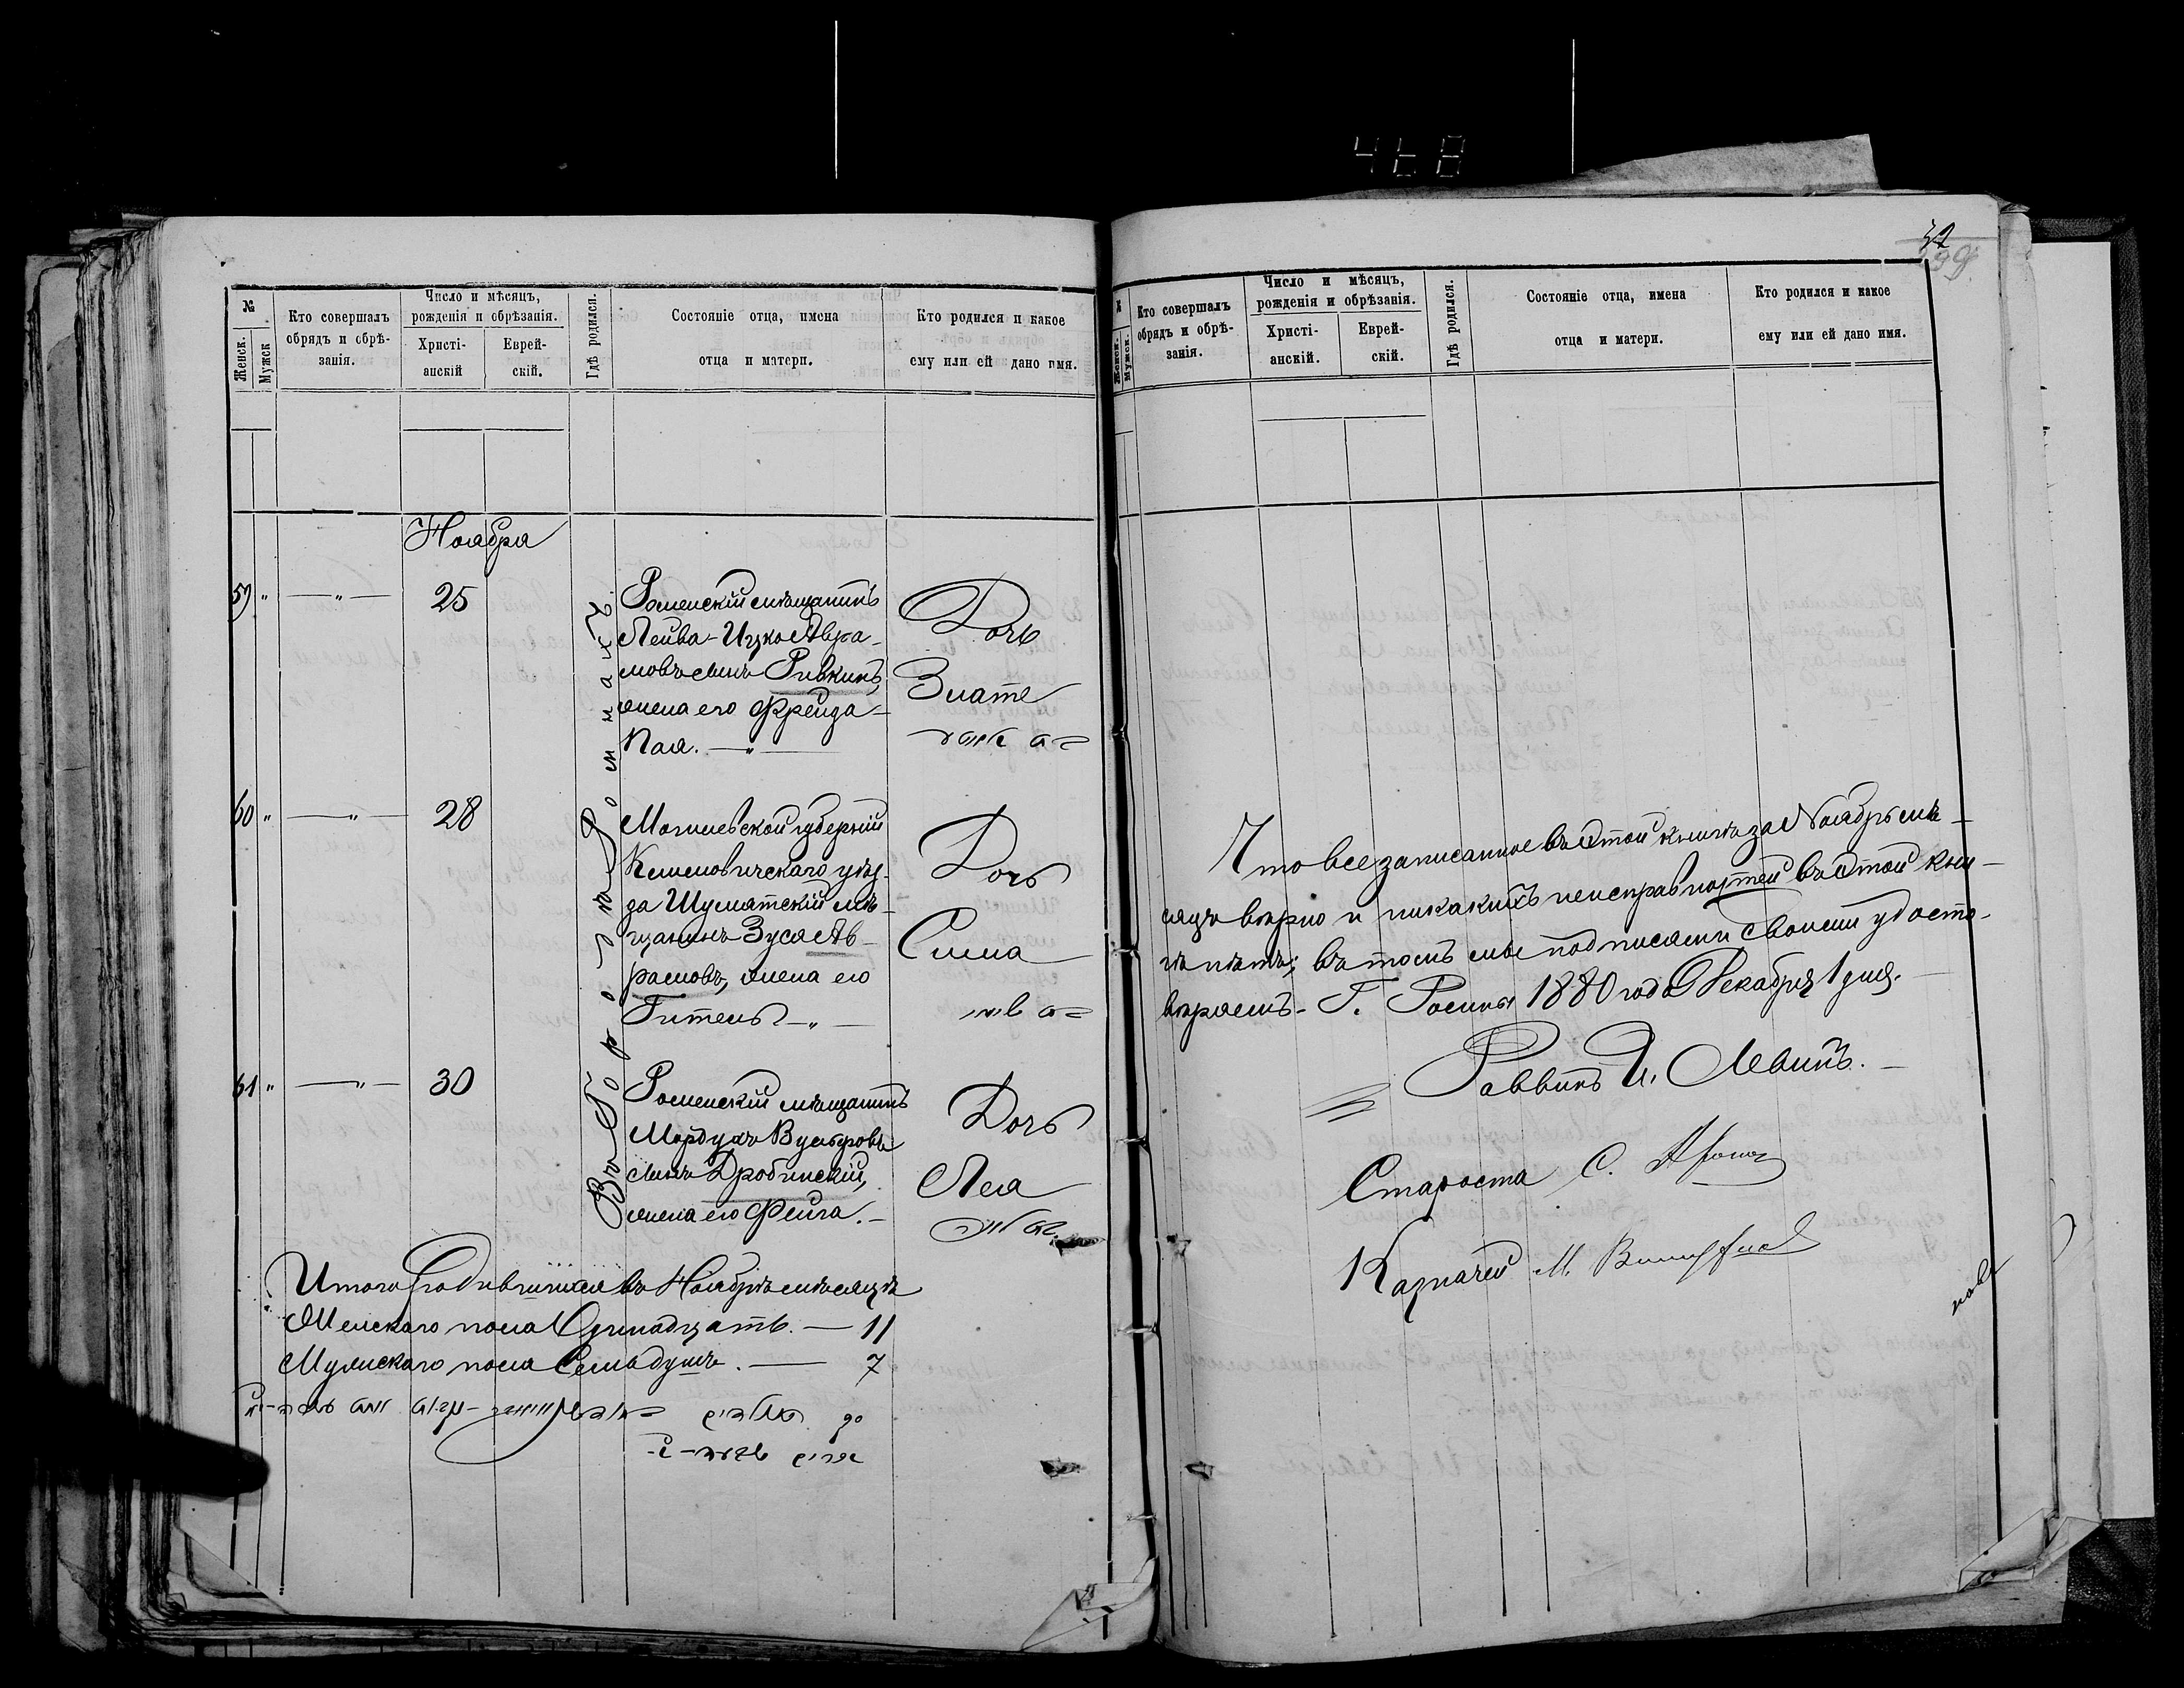 468
№
Женск.
Мужск
Кто совершалъ
обрядъ и обрѣ-
занія.
Число и мѣсяцъ,
рожденія и обрѣзанія.
Христі-
анскій
Еврей-
скій.
Гдѣ родился.
Состояніе отца, имена
отца и матери.
Кто родился и какое
ему или ей дано имя.
Ноября
Въ Городѣ Ромнахъ.
59 " — " — 25
Роменскій мѣщанинъ
Лейва-Ицко Авра-
мовъ сынъ Ривкинъ,
жена его Фрейда-
Пая. — " —
Дочь
Злате
60 " — " — 28
Могилевской губерніи
Климовичскаго уѣз-
да Шумятскій мѣ-
щанинъ Зуся Ав-
рамовъ, жена его
Гитель — " —
Дочь
Сима
61 " — " — 30
Роменскій мѣщанинъ
Мордухъ Вульфовъ
сынъ Дробинскій,
жена его Фейга. —
Дочь
Лея
Итого родившихся въ Ноябрѣ мѣсяцѣ
Женскаго пола Одинадцать. — 11
Мужскаго пола Семь душъ. — 7
№
Женск.
Мужск.
Кто совершалъ
обрядъ и обрѣ-
занія.
Число и мѣсяцъ,
рожденія и обрѣзанія.
Христі-
анскій.
Еврей-
скій.
Гдѣ родился.
Состояніе отца, имена
отца и матери.
Кто родился и какое
ему или ей дано имя.
Что все записанное въ этой книгѣ за Ноябрь мѣ-
сяцъ вѣрно и никакихъ неисправностей въ этой кни-
гѣ нѣтъ; въ томъ мы подписями своими удосто-
вѣряемъ. Г. Ромны 1880 года Декабря 1 дня.
Раввинъ И. Левинъ.
Староста С.
Казначей М.